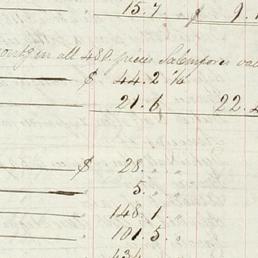 " 15.7 $ 9.
in all 480 pieces Salempores
" $ 44.2 ½
" 21.6 22.
$ 28. " "
" 5. "
" 148.1
" 101.5. "
434